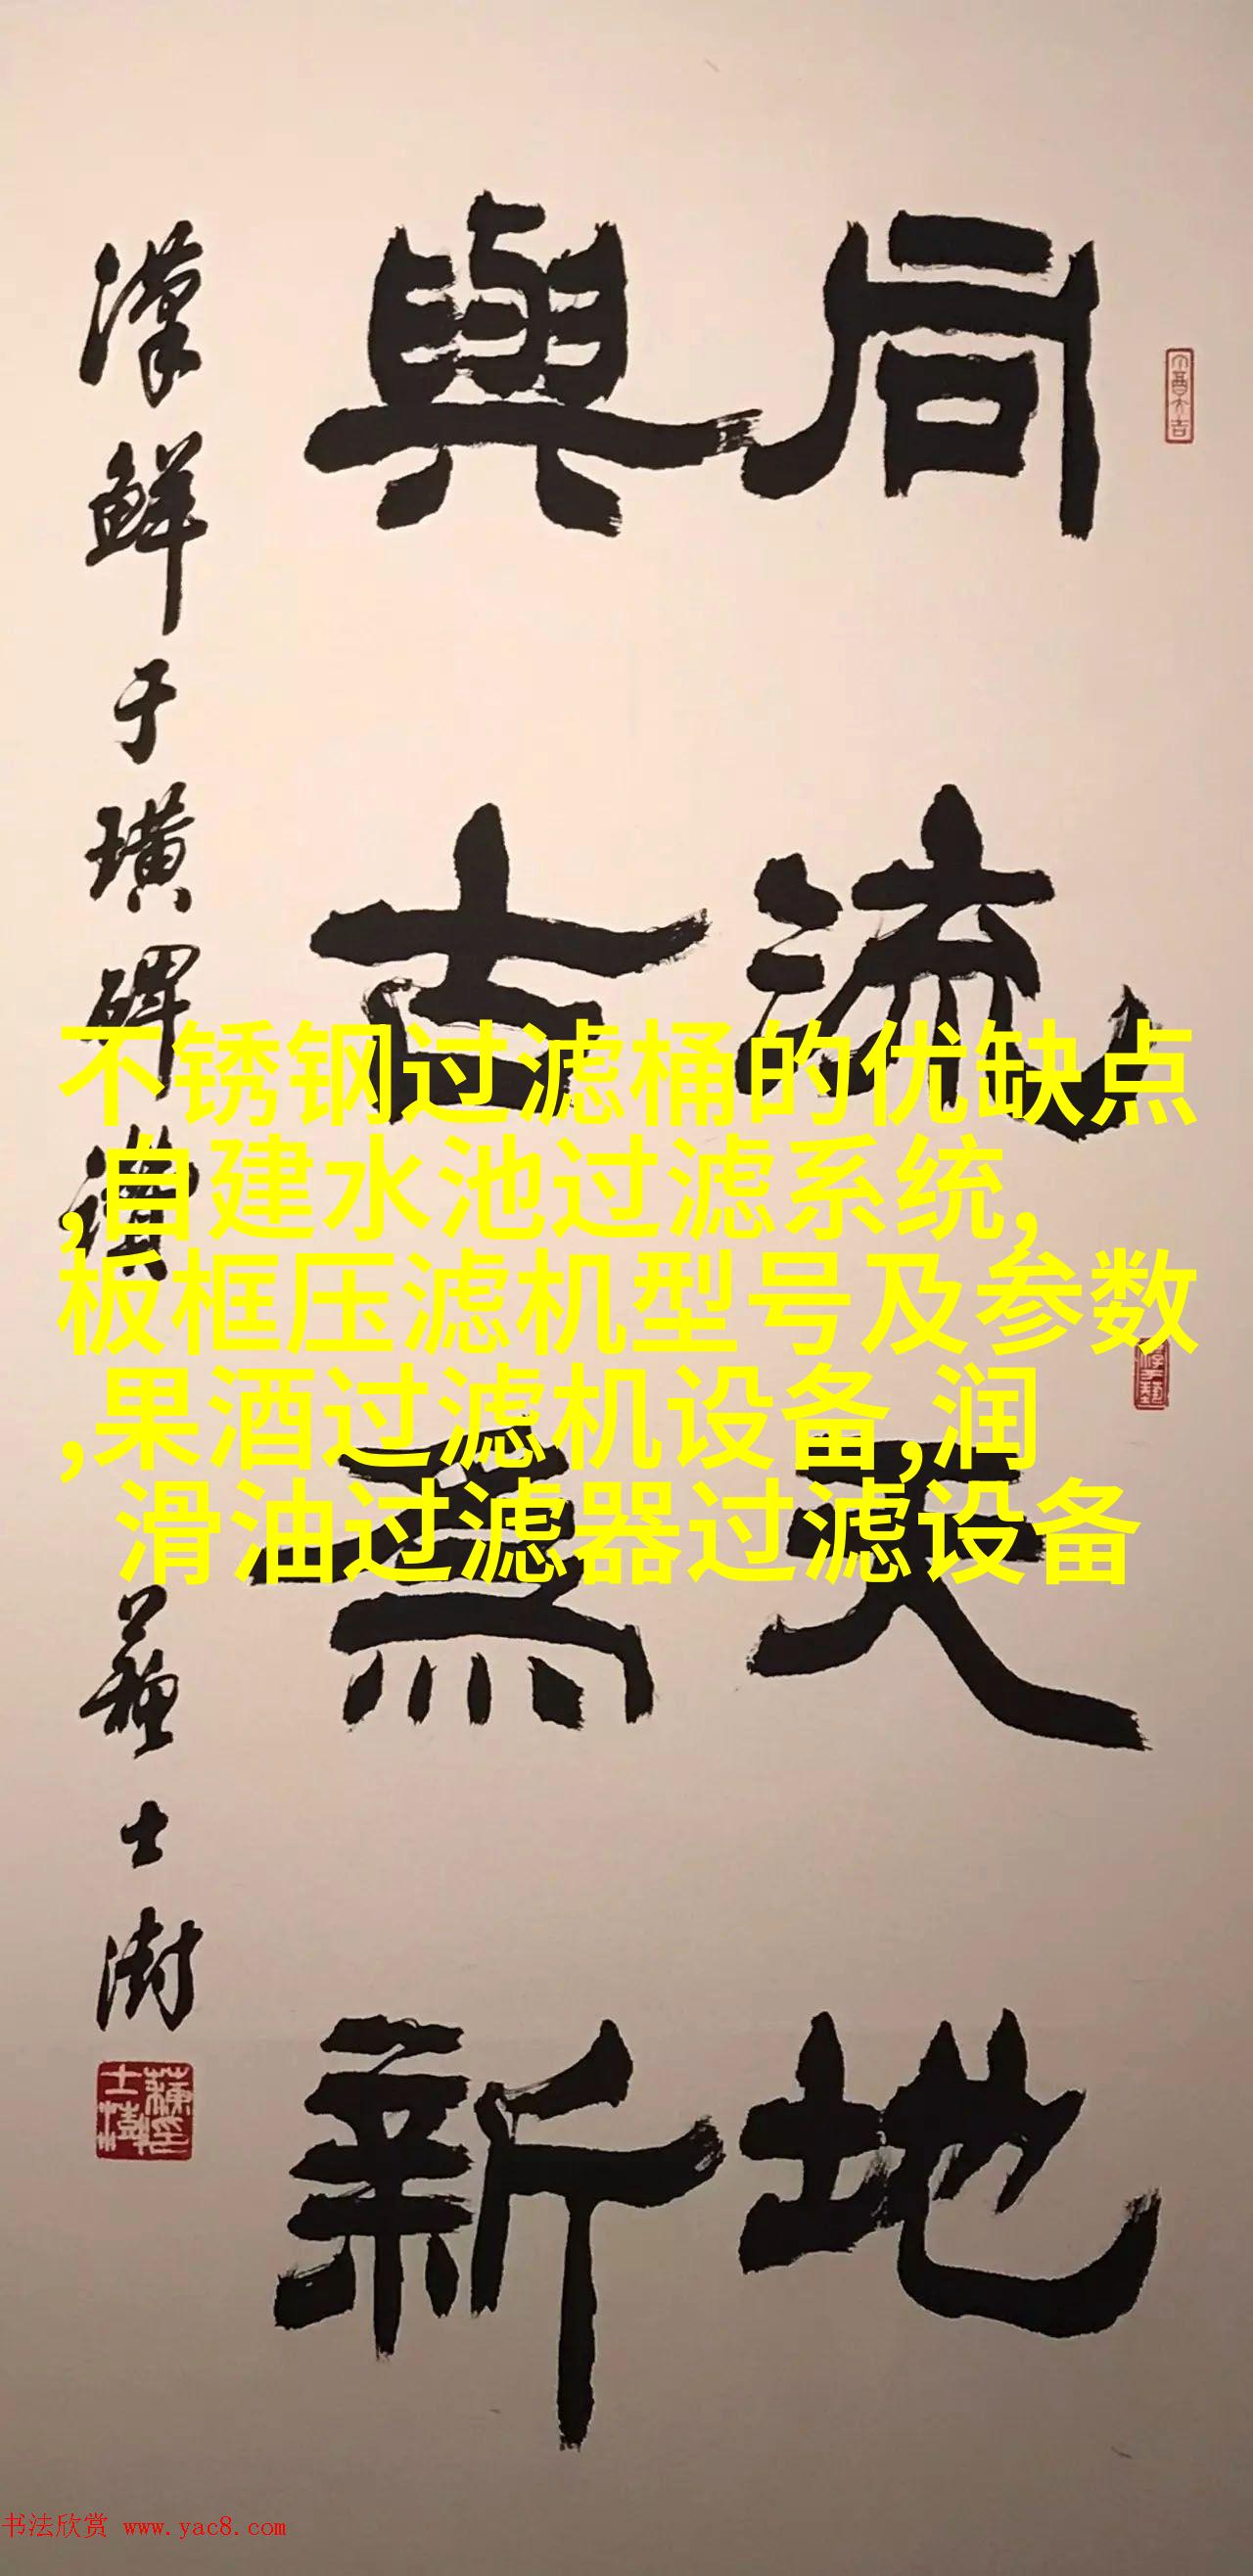 同流天地
與古為新
漢鮮于璜碑
蘇士澍
不锈钢过滤桶的优缺点
,自建水池过滤系统,
板框压滤机型号及参数
,果酒过滤机设备,润
滑油过滤器过滤设备
书法欣赏 www.yac8.com